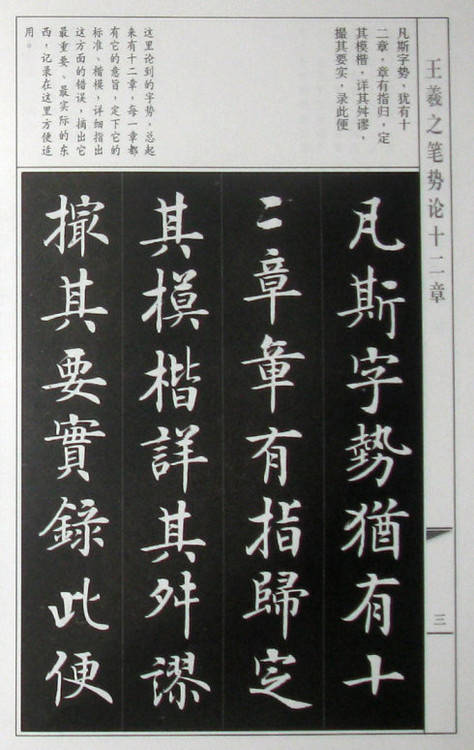 王羲之笔势论十二章
三
凡斯字势，犹有十
二章，章有指归，定
其模楷，详其舛谬，
撮其要实，录此便
这里论到的字势，总起
来有十二章，每一章都
有它的意旨，定下它的
标准、楷模，详细指出
这方面的错误，摘出它
最重要、最实际的东
西，记录在这里方便适
用。
凡斯字勢猶有十
二章章有指歸定
其模楷詳其舛謬
撮其要實錄此便